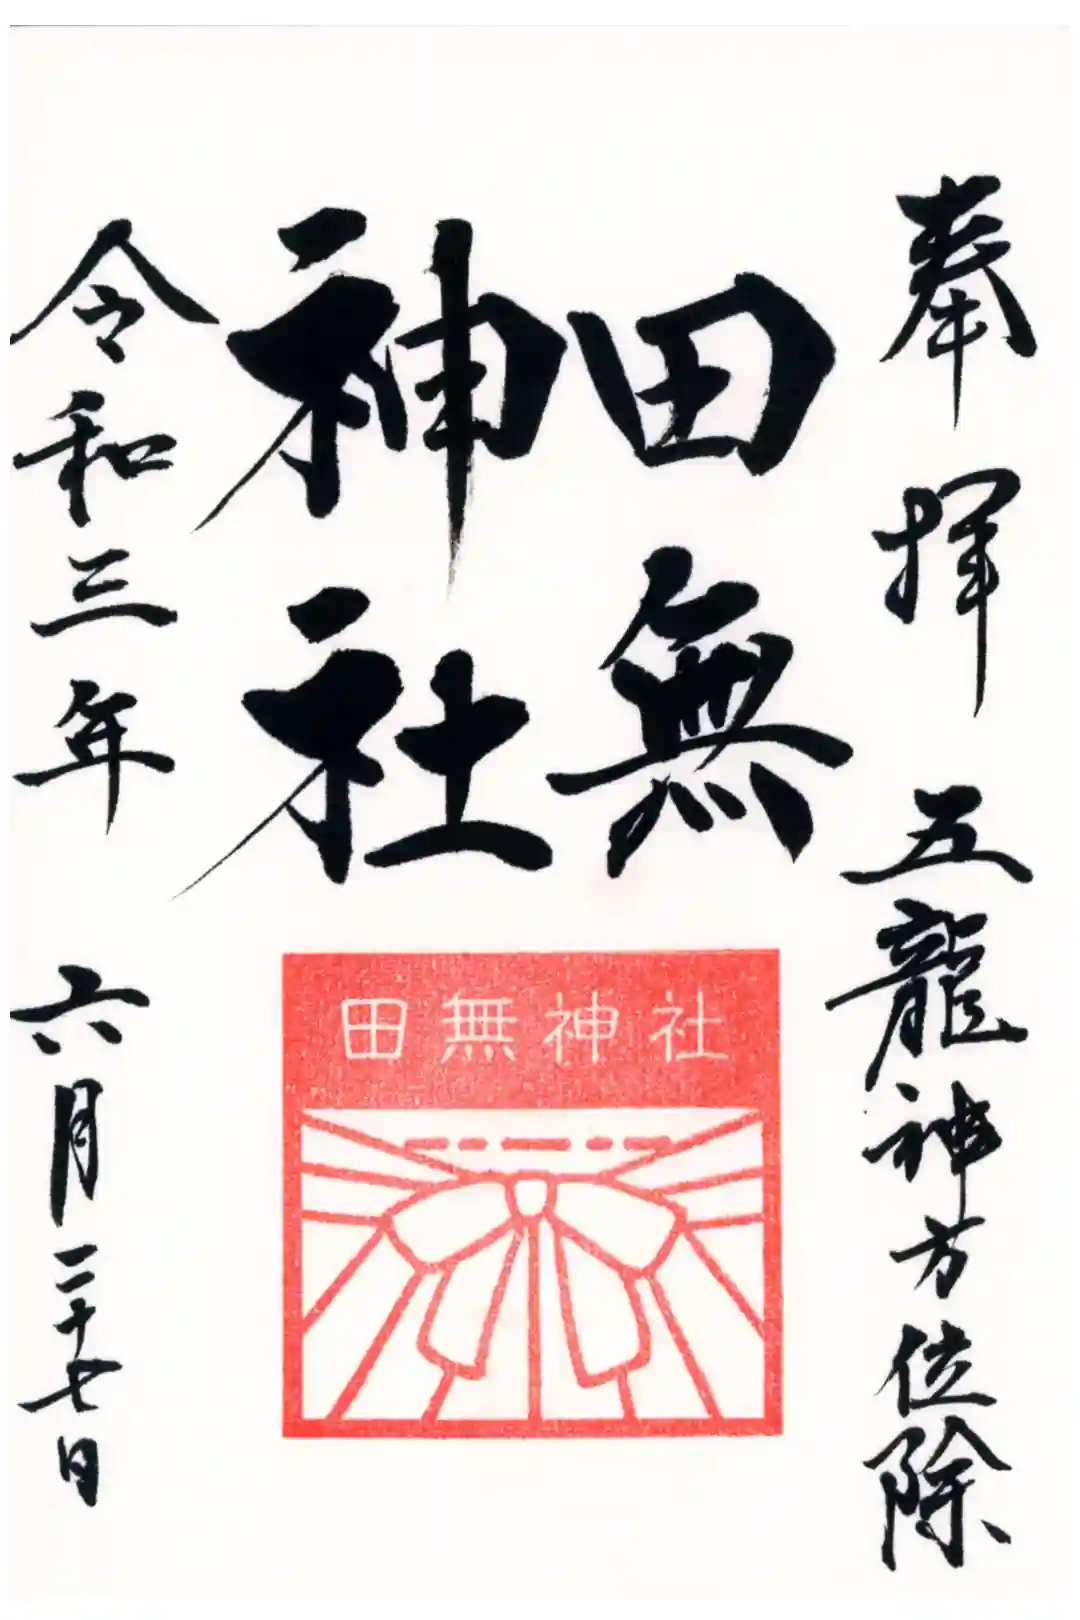 奉拝 五龍神方位除
田無
神社
田無神社
令和三年 六月二十七日